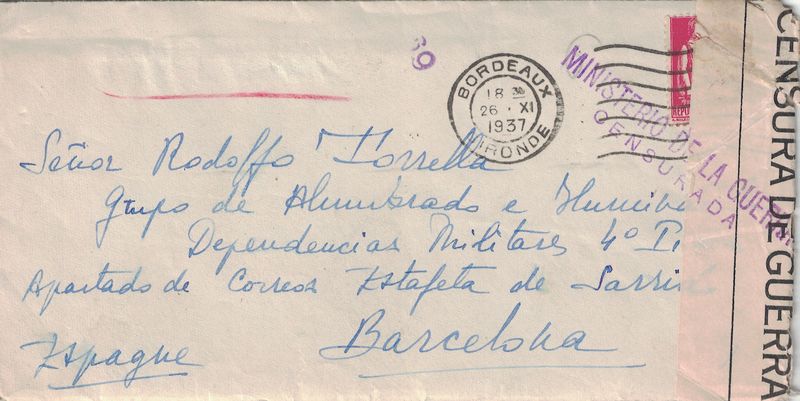 39
BORDEAUX
18 30
26 · XI
1937
GIRONDE
REPU
MINISTERIO DE LA GUERRA
CENSURADA
Señor Rodolfo Torrella
Grupo de Alumbrado e Ilumina
Dependencias Militares 4º Pi
Apartado de Correos Estafeta de Sarriá
Barcelona
Espagne
CENSURA DE GUERRA